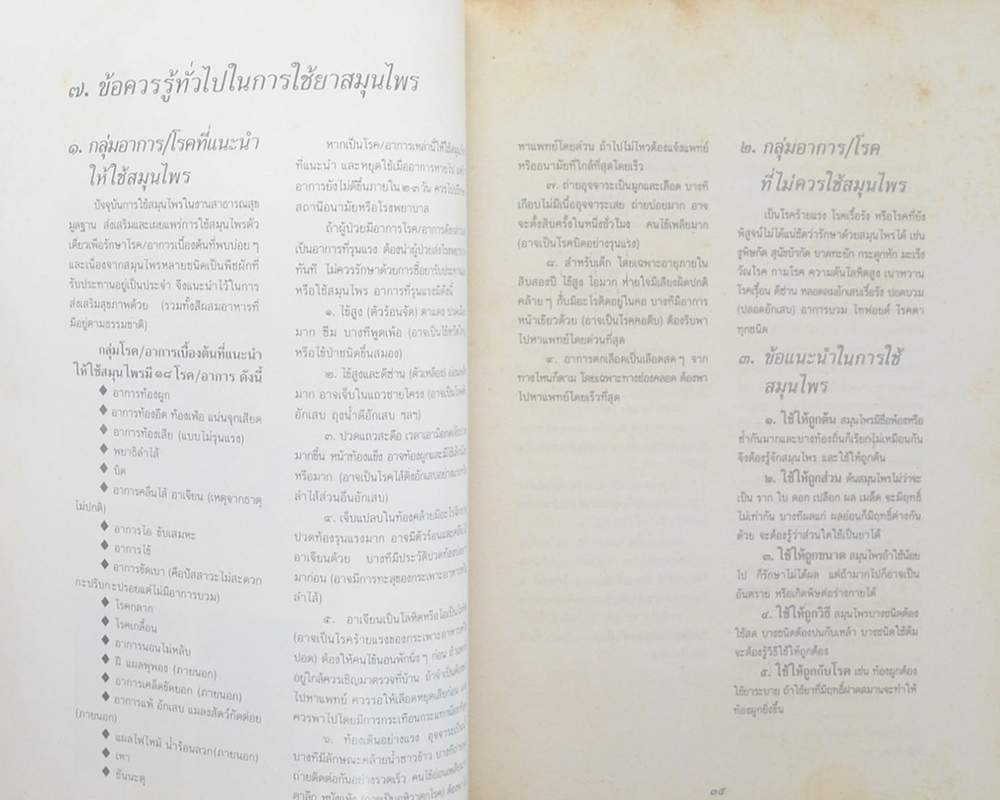 ๗. ข้อควรรู้ทั่วไปในการใช้ยาสมุนไพร
๑. กลุ่มอาการ/โรคที่แนะนำ
ให้ใช้สมุนไพร
ปัจจุบันการใช้สมุนไพรในงานสาธารณสุข
มูลฐาน ส่งเสริมและเผยแพร่การใช้สมุนไพรตัว
เดียวเพื่อรักษาโรค/อาการเบื้องต้นที่พบบ่อย ๆ
และเนื่องจากสมุนไพรหลายชนิดเป็นพืชผักที่
รับประทานอยู่เป็นประจำ จึงแนะนำไว้ในการ
ส่งเสริมสุขภาพด้วย (รวมทั้งสีผสมอาหารที่
มีอยู่ตามธรรมชาติ)
กลุ่มโรค/อาการเบื้องต้นที่แนะนำ
ให้ใช้สมุนไพรมี ๑๘ โรค/อาการ ดังนี้
◆ อาการท้องผูก
◆ อาการท้องอืด ท้องเฟ้อ แน่นจุกเสียด
◆ อาการท้องเสีย (แบบไม่รุนแรง)
◆ พยาธิลำไส้
◆ บิด
◆ อาการคลื่นไส้ อาเจียน (เหตุจากธาตุ
ไม่ปกติ)
◆ อาการไอ ขับเสมหะ
◆ อาการไข้
◆ อาการขัดเบา (คือปัสสาวะไม่สะดวก
กะปริบกะปรอยแต่ไม่มีอาการบวม)
◆ โรคกลาก
◆ โรคเกลื้อน
◆ อาการนอนไม่หลับ
◆ ฝี แผลพุพอง (ภายนอก)
◆ อาการเคล็ดขัดยอก (ภายนอก)
◆ อาการแพ้ อักเสบ แมลงสัตว์กัดต่อย
(ภายนอก)
◆ แผลไฟไหม้ น้ำร้อนลวก(ภายนอก)
◆ เหา
◆ ชันนะตุ
หากเป็นโรค/อาการเหล่านี้ให้ใช้
ที่แนะนำ และหยุดใช้เมื่ออาการหายไป
อาการยังไม่ดีขึ้นภายใน ๒-๓ วัน ควรไป
สถานีอนามัยหรือโรงพยาบาล
ถ้าผู้ป่วยมีอาการโรค/อาการ
เป็นอาการที่รุนแรง ต้องนำผู้ป่วยส่งโรงพยาบาล
ทันที ไม่ควรรักษาด้วยการซื้อยารับประทาน
หรือใช้สมุนไพร อาการที่รุนแรงมีดังนี้
๑. ไข้สูง (ตัวร้อนจัด) ตาแดง ปวดเมื่อย
มาก ซึม บางทีพูดเพ้อ (อาจเป็นไข้หวัดใหญ่
หรือไข้ป่าชนิดขึ้นสมอง)
๒. ไข้สูงและดีซ่าน (ตัวเหลือง) อ่อนเพลีย
มาก อาจเจ็บในแถวชายโครง (อาจเป็นโรคตับ
อักเสบ ถุงน้ำดีอักเสบ ฯลฯ)
๓. ปวดแถวสะดือ เวลาเอามือกด
มากขึ้น หน้าท้องแข็ง อาจท้องผูกและมีไข้เล็กน้อย
หรือมาก (อาจเป็นโรคไส้ติ่งอักเสบอย่างแรงหรือ
ลำไส้ส่วนอื่นอักเสบ)
๔. เจ็บแปลบในท้องคล้ายมีอะไร
ปวดท้องรุนแรงมาก อาจมีตัวร้อนและคลื่นไส้
อาเจียนด้วย บางทีมีประวัติปวดท้อง
มาก่อน (อาจมีการทะลุของกระเพาะอาหารหรือ
ลำไส้)
๕. อาเจียนเป็นโลหิตหรือไอเป็นโลหิต
(อาจเป็นโรคร้ายแรงของกระเพาะอาหารหรือ
ปอด) ต้องให้คนไข้นอนพักนิ่ง ๆ ก่อน ถ้าแพทย์
อยู่ใกล้ควรเชิญมาตรวจที่บ้าน ถ้าจำเป็นต้อง
ไปหาแพทย์ ควรรอให้เลือดหยุดเสียก่อน
ควรพาไปโดยมีการกระเทือนกระแทกน้อยที่สุด
๖. ท้องเดินอย่างแรง อุจจาระเป็นน้ำ
บางทีมีลักษณะคล้ายน้ำซาวข้าว บางที
ถ่ายติดต่อกันอย่างรวดเร็ว คนไข้อ่อนเพลีย
ตาลึก หนังแห้ง (อาจเป็นอหิวาตกโรค) ต้อง
หาแพทย์โดยด่วน ถ้าไปไม่ไหวต้องแจ้งแพทย์
หรืออนามัยที่ใกล้ที่สุดโดยเร็ว
๗. ถ่ายอุจจาระเป็นมูกและเลือด บางที
เกือบไม่มีเนื้ออุจจาระเลย ถ่ายบ่อยมาก อาจ
จะตั้งสิบครั้งในหนึ่งชั่วโมง คนไข้เพลียมาก
(อาจเป็นโรคบิดอย่างรุนแรง)
๘. สำหรับเด็ก โดยเฉพาะอายุภายใน
สิบสองปี ไข้สูง ไอมาก หายใจมีเสียงผิดปกติ
คล้าย ๆ กับมีอะไรติดอยู่ในคอ บางทีมีอาการ
หน้าเขียวด้วย (อาจเป็นโรคคอตีบ) ต้องรีบพา
ไปหาแพทย์โดยด่วนที่สุด
๙. อาการตกเลือดเป็นเลือดสด ๆ จาก
ทางไหนก็ตาม โดยเฉพาะทางช่องคลอด ต้องพา
ไปหาแพทย์โดยเร็วที่สุด
๒. กลุ่มอาการ/โรค
ที่ไม่ควรใช้สมุนไพร
เป็นโรคร้ายแรง โรคเรื้อรัง หรือโรคที่ยัง
พิสูจน์ไม่ได้แน่ชัดว่ารักษาด้วยสมุนไพรได้ เช่น
งูพิษกัด สุนัขบ้ากัด บาดทะยัก กระดูกหัก มะเร็ง
วัณโรค กามโรค ความดันโลหิตสูง เบาหวาน
โรคเรื้อน ดีซ่าน หลอดลมอักเสบเรื้อรัง ปอดบวม
(ปอดอักเสบ) อาการบวม ไทฟอยด์ โรคตา
ทุกชนิด
๓. ข้อแนะนำในการใช้
สมุนไพร
๑. ใช้ให้ถูกต้น สมุนไพรมีชื่อพ้องหรือ
ซ้ำกันมากและบางท้องถิ่นก็เรียกไม่เหมือนกัน
จึงต้องรู้จักสมุนไพร และใช้ให้ถูกต้น
๒. ใช้ให้ถูกส่วน ต้นสมุนไพรไม่ว่าจะ
เป็น ราก ใบ ดอก เปลือก ผล เมล็ด จะมีฤทธิ์
ไม่เท่ากัน บางทีผลแก่ ผลอ่อนก็มีฤทธิ์ต่างกัน
ด้วย จะต้องรู้ว่าส่วนใดใช้เป็นยาได้
๓. ใช้ให้ถูกขนาด สมุนไพรถ้าใช้น้อย
ไป ก็รักษาไม่ได้ผล แต่ถ้ามากไปก็อาจเป็น
อันตราย หรือเกิดพิษต่อร่างกายได้
๔. ใช้ให้ถูกวิธี สมุนไพรบางชนิดต้อง
ใช้สด บางชนิดต้องปนกับเหล้า บางชนิดใช้ต้ม
จะต้องรู้วิธีใช้ให้ถูกต้อง
๕. ใช้ให้ถูกกับโรค เช่น ท้องผูกต้อง
ใช้ยาระบาย ถ้าใช้ยาที่มีฤทธิ์ฝาดสมานจะทำให้
ท้องผูกยิ่งขึ้น
๓๕